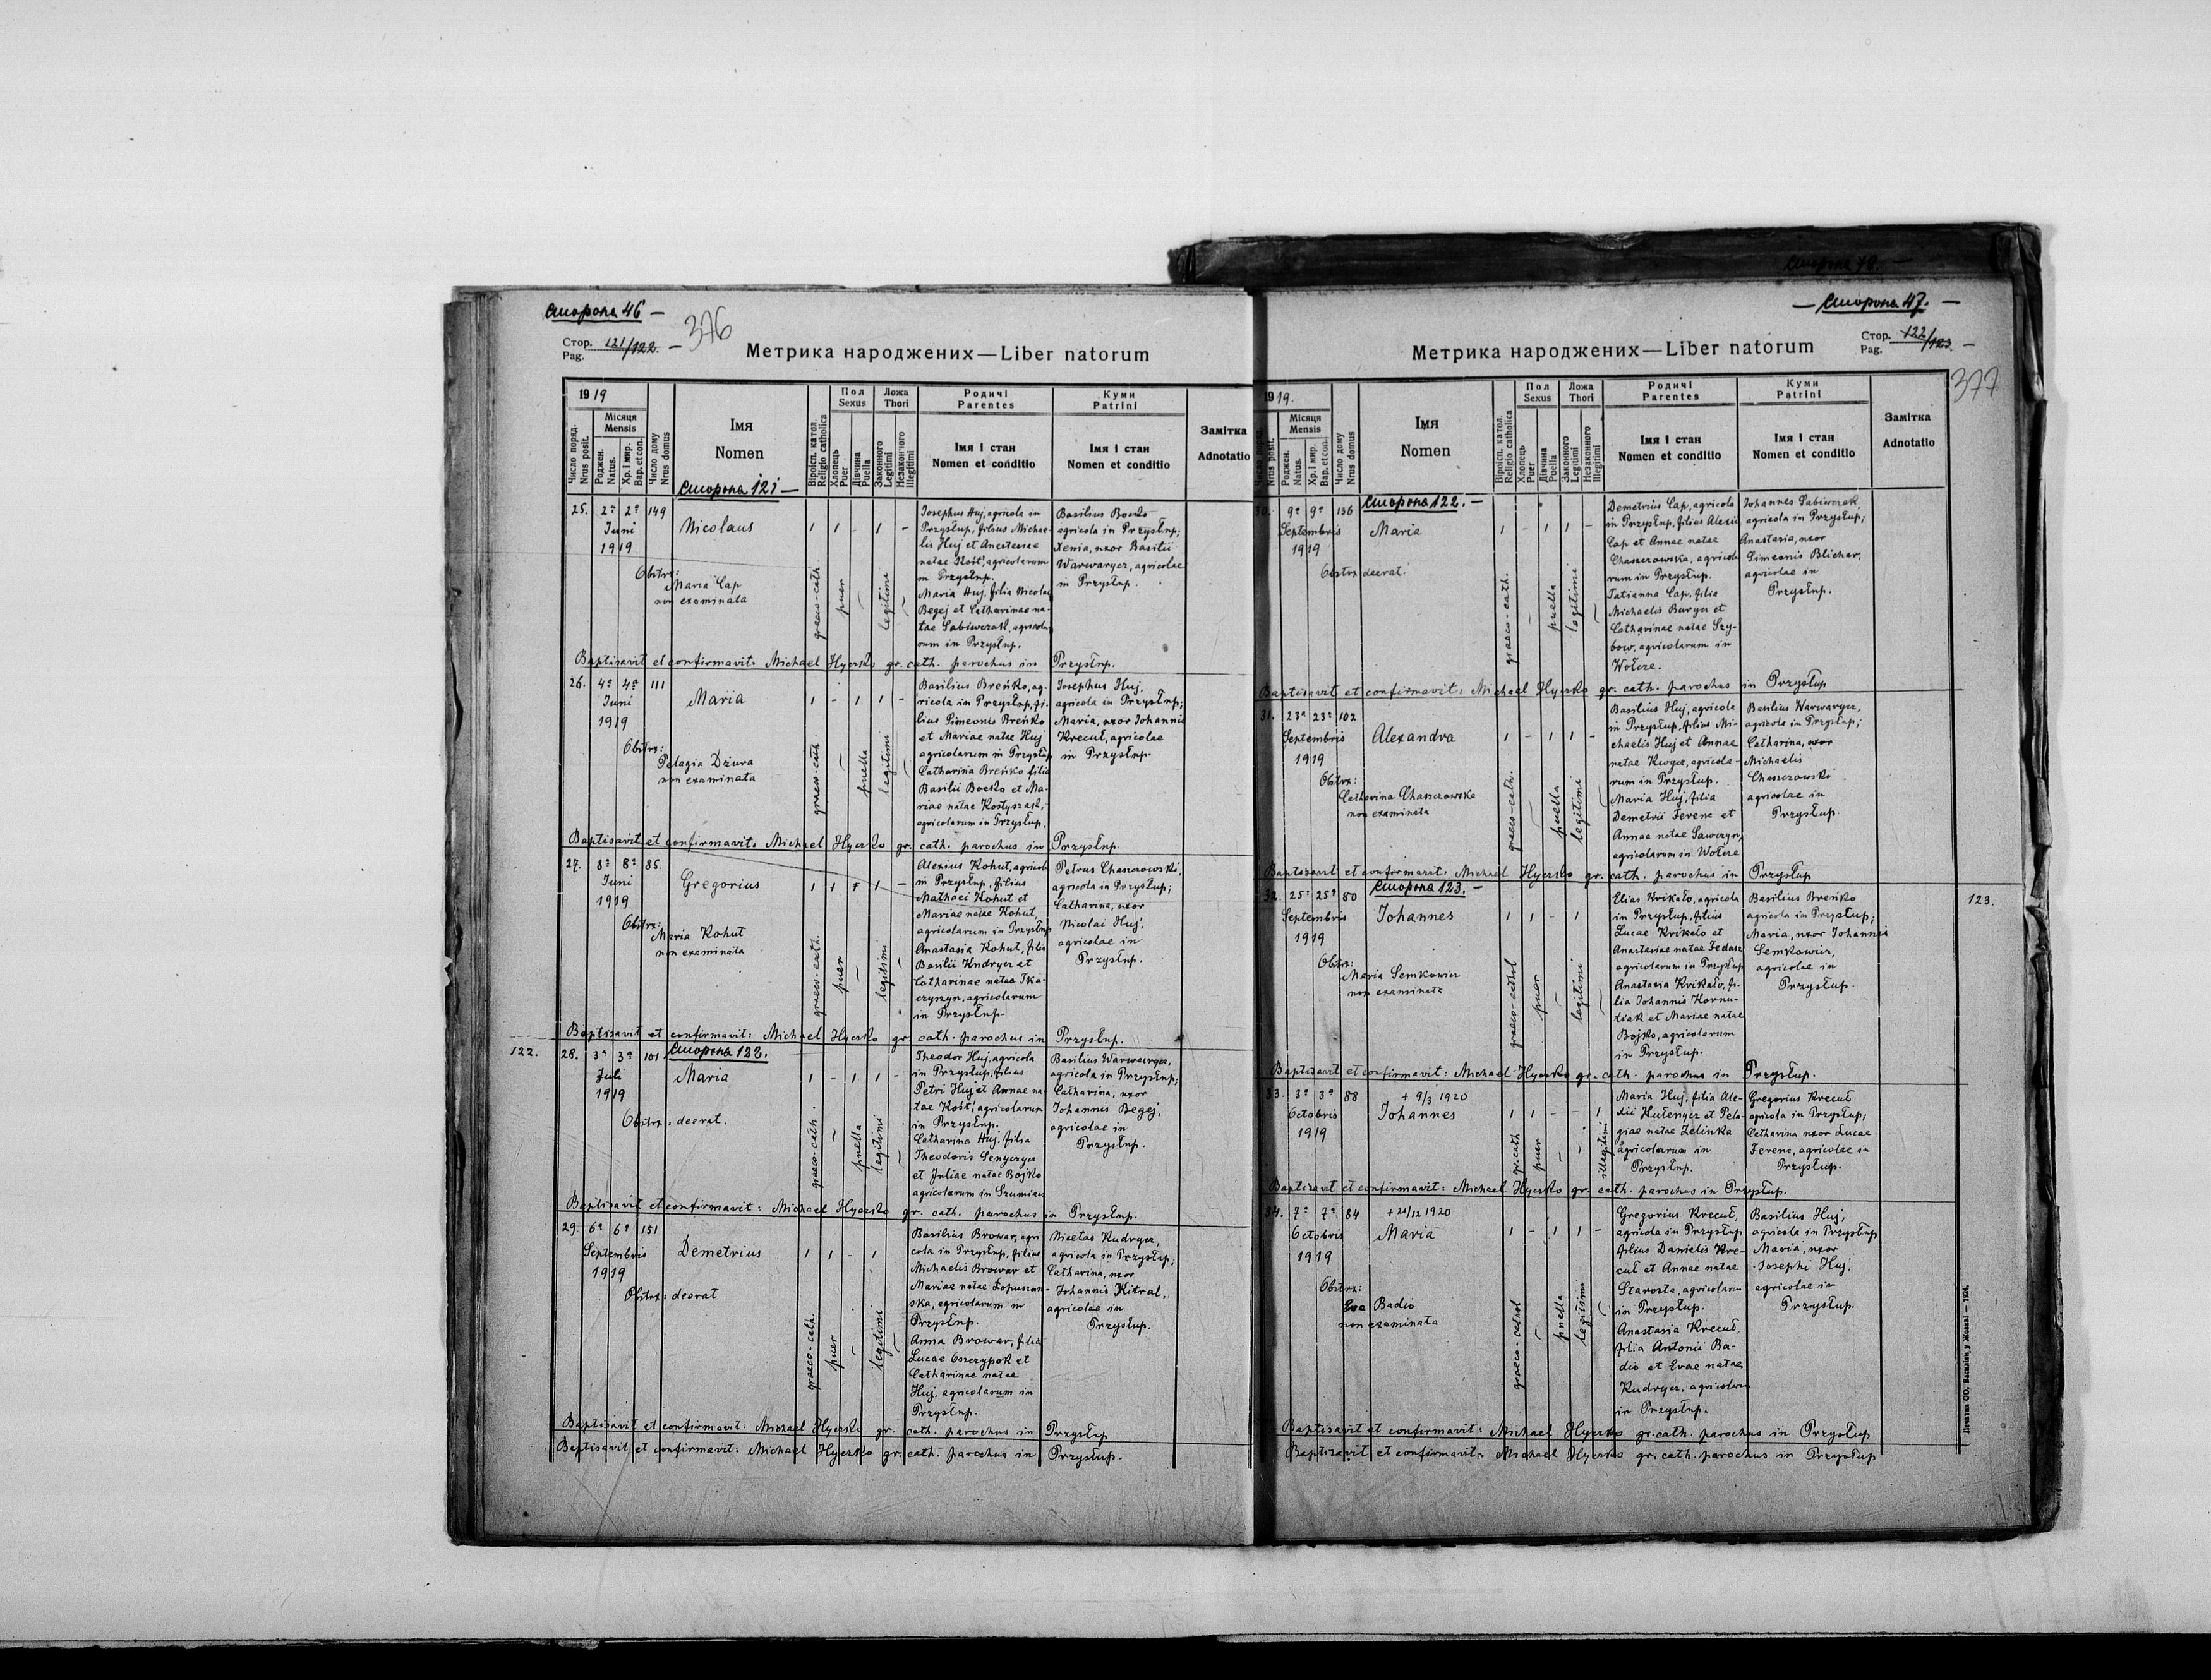 Сторона 46 —
Стор. 121/122. — 376
Pag.
Метрика народжених — Liber natorum
1919
Місяця
Mensis
Число поряд.
Nrus posit.
Роджен.
Natus.
Хр. і мир.
Bap. et con.
Число дому
Nrus domus
Імя
Nomen
Віроісп. катол.
Religio catholica
Пол
Sexus
Хлопець
Puer
Дівчина
Puella
Ложа
Thori
Законного
Legitimi
Незаконного
Illegitimi
Родичі
Parentes
Імя і стан
Nomen et conditio
Куми
Patrini
Імя і стан
Nomen et conditio
Замітка
Adnotatio
Сторона 121 —
25. 2ª 2ª 149
Juni
1919
Nicolaus
1 1 - 1 -
Obitrx:
Maria Cap
non examinata
graeco-cath.
puer
legitimi
Josephus Huj, agricola in
Przysłup, filius Michae-
lis Huj et Anastasiae
natae Kość, agricolarum
in Przysłup.
Maria Huj, filia Nicolai
Begej et Catharinae na-
tae Sabiwczak, agricola-
rum in Przysłup.
Basilius Bocko
agricola in Przysłup;
Xenia, uxor Basilii
Warwarycz, agricolae
in Przysłup.
Baptisavit et confirmavit: Michael Hycsko gr. cath. parochus in Przysłup.
26. 4ª 4ª 111
Juni
1919
Maria
1 - 1 1 -
Obitrx:
Pelagia Dziura
non examinata
graeco-cath.
puella
legitimi
Basilius Breńko, ag-
ricola in Przysłup, fi-
lius Simeonis Breńko
et Mariae natae Huj
agricolarum in Przysłup
Catharina Breńko filia
Basilii Bocko et Ma-
riae natae Kostyszak,
agricolarum in Przysłup.
Josephus Huj,
agricola in Przysłup;
Maria, uxor Johannis
Krecuł, agricolae
in Przysłup.
Baptisavit et confirmavit: Michael Hycsko gr. cath. parochus in Przysłup.
27. 8ª 8ª 85.
Juni
1919
Gregorius
1 1 - 1 -
Obitrx:
Maria Kohut
non examinata
graeco-cath.
puer
legitimi
Alexius Kohut, agricola
in Przysłup, filius
Mathaei Kohut et
Mariae natae Kohut,
agricolarum in Przysłup
Anastasia Kohut, filia
Basilii Kudrycz et
Catharinae natae Tka-
czyszyn, agricolarum
in Przysłup.
Petrus Chaszczowski,
agricola in Przysłup;
Catharina, uxor
Nicolai Huj,
agricolae in
Przysłup.
Baptisavit et confirmavit: Michael Hycsko gr. cath. parochus in Przysłup.
122.
28. 3ª 3ª 101 Сторона 122.
Juli
1919
Maria
1 - 1 1 -
Obitrx: deerat.
graeco-cath.
puella
legitimi
Theodor Huj, agricola
in Przysłup, filius
Petri Huj et Annae na-
tae Kość, agricolarum
in Przysłup.
Catharina Huj, filia
Theodoris Senyczycz
et Juliae natae Bojko
agricolarum in Szumiacz
Basilius Warwarycz,
agricola in Przysłup;
Catharina, uxor
Johannis Begej,
agricolae in
Przysłup.
Baptisavit et confirmavit: Michael Hycsko gr. cath. parochus in Przysłup.
29. 6ª 6ª 151
Septembris
1919
Demetrius
1 1 - 1
Obitrx: deerat
graeco-cath.
puer
legitimi
Basilius Browar, agri
cola in Przysłup, filius
Michaelis Browar et
Mariae natae Łopuszan-
ska, agricolarum in
Przysłup.
Anna Browar, filia
Lucae Oszczypok et
Catharinae natae
Huj, agricolarum in
Przysłup.
Nicetas Kudrycz,
agricola in Przysłup;
Catharina, uxor
Johannis Kitral,
agricolae in
Przysłup.
Baptisavit et confirmavit: Michael Hycsko gr. cath. parochus in Przysłup
Baptisavit et confirmavit: Michael Hycsko gr. cath. parochus in Przysłup.
— Сторона 47. —
Стор. 122/123. —
Pag.
377
Метрика народжених — Liber natorum
1919.
Місяця
Mensis
Число поряд.
Nrus posit.
Роджен.
Natus.
Хр. і мир.
Bap. et con.
Число дому
Nrus domus
Імя
Nomen
Віроісп. катол.
Religio catholica
Пол
Sexus
Хлопець
Puer
Дівчина
Puella
Ложа
Thori
Законного
Legitimi
Незаконного
Illegitimi
Родичі
Parentes
Імя і стан
Nomen et conditio
Куми
Patrini
Імя і стан
Nomen et conditio
Замітка
Adnotatio
Сторона 122. —
30. 9ª 9ª 136
Septembris
1919
Maria
1 - 1 1 -
Obstrx deerat.
graeco-cath.
puella
legitimi
Demetrius Cap, agricola
in Przysłup, filius Alexii
Cap et Annae natae
Chaszczowska, agricola
rum in Przysłup.
Tatianna Cap, filia
Michaelis Burycz et
Catharinae natae Szy-
bow, agricolarum in
Wołcze.
Johannes Sabiwczak
agricola in Przysłup;
Anastasia, uxor
Simeonis Blichar,
agricolae in
Przysłup.
Baptisavit et confirmavit: Michael Hycsko gr. cath. parochus in Przysłup
31. 23ª 23ª 102
Septembris
1919
Alexandra
1 - 1 1 -
Obitrx:
Catharina Chaszczowska
non examinata
graeco-cath.
puella
legitimi
Basilius Huj, agricola
in Przysłup, filius Mi-
chaelis Huj et Annae
natae Kwycz, agricola-
rum in Przysłup.
Maria Huj, filia
Demetrii Ferenc et
Annae natae Sawczyn,
agricolarum in Wołcze
Basilius Warwarycz,
agricola in Przysłup;
Catharina, uxor
Michaelis
Chaszczowski
agricolae in
Przysłup.
Baptisavit et confirmavit: Michael Hycsko gr. cath. parochus in Przysłup
32. 25ª 25ª 80 Сторона 123. —
123.
Septembris
1919
Johannes
1 1 - 1
Obitrx:
Maria Semkowicz
non examinata
graeco-cathol
puer
legitimi
Elias Krikało, agricola
in Przysłup, filius
Lucae Krikało et
Anastasiae natae Fedasz
agricolarum in Przysłup
Anastasia Krikało, fi-
lia Johannis Kornu-
tiak et Mariae natae
Bojko, agricolarum
in Przysłup.
Basilius Breńko
agricola in Przysłup;
Maria, uxor Johannis
Semkowicz,
agricolae in
Przysłup.
Baptisavit et confirmavit: Michael Hycsko gr. cath. parochus in Przysłup.
33. 3ª 3ª 88 + 9/3 1920
Octobris
1919
Johannes
1 1 - - 1
gr. cath
puer
illegitimi
Maria Huj, filia Ale-
xii Hutenycz et Pela-
giae natae Zelinka
agricolarum in
Przysłup.
Gregorius Krecuł
agricola in Przysłup;
Catharina uxor Lucae
Ferenc, agricolae in
Przysłup.
Baptisavit et confirmavit: Michael Hycsko gr. cath. parochus in Przysłup.
34. 7ª 7ª 84 + 21/12 1920
Octobris
1919
Maria
1 - 1 1 -
Obitrx:
Eva Badio
non examinata
graeco-cathol
puella
legitimi
Gregorius Krecuł,
agricola in Przysłup
filius Danielis Kre-
cuł et Annae natae
Starosta, agricolarum
in Przysłup.
Anastasia Krecuł,
filia Antonii Ba-
dio et Evae natae
Kudrycz, agricolarum
in Przysłup.
Basilius Huj,
agricola in Przysłup
Maria, uxor
Josephi Huj,
agricolae in
Przysłup.
Baptisavit et confirmavit: Michael Hycsko gr. cath. parochus in Przysłup
Baptisavit et confirmavit: Michael Hycsko gr. cath. parochus in Przysłup
Печатня ОО. Василіян у Жовкві — 1924.